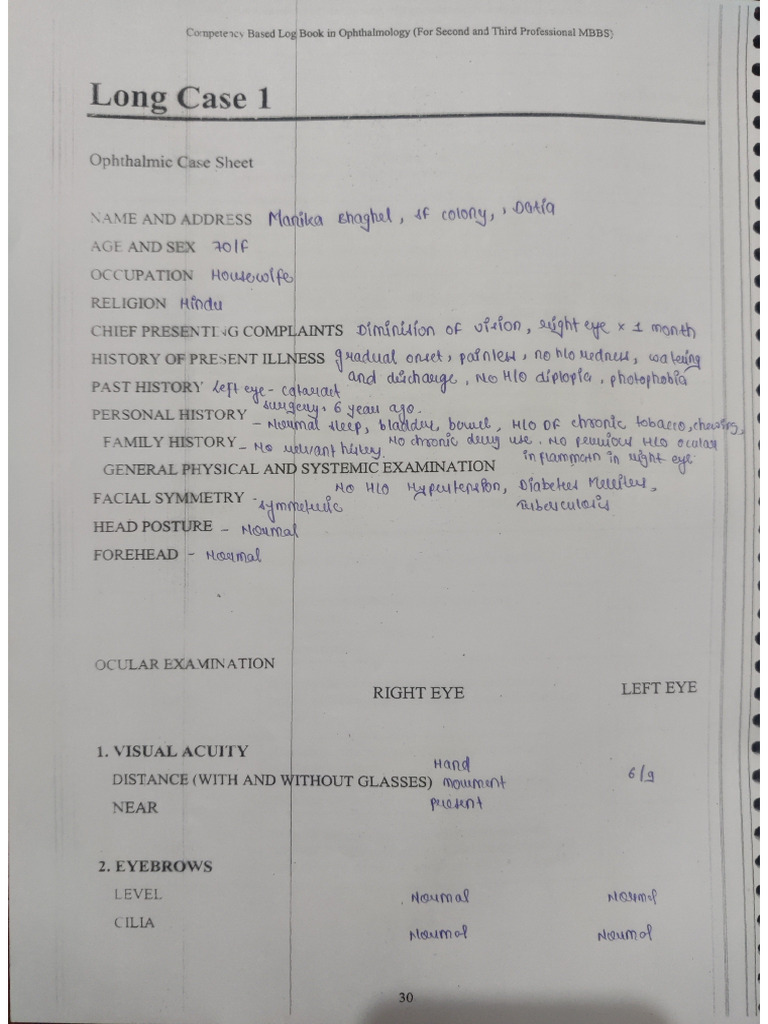 Competency Based Log Book in Ophthalmology (For Second and Third Professional MBBS)
Long Case 1
Ophthalmic Case Sheet
NAME AND ADDRESS Manika, colony, Datia
AGE AND SEX 70/F
OCCUPATION Housewife
RELIGION Hindu
CHIEF PRESENTING COMPLAINTS Diminition of vision, right eye x 1 month
HISTORY OF PRESENT ILLNESS gradual onset, painless, no h/o redness, watering
and discharge, No H/O diplopia, photophobia
PAST HISTORY Left eye - cataract
surgery. 6 years ago.
PERSONAL HISTORY - Normal sleep, bladder, bowel, H/O OF chronic tobacco, chewing,
No chronic drug use. No previous H/O ocular
inflammatn in right eye
FAMILY HISTORY - No relevant history.
GENERAL PHYSICAL AND SYSTEMIC EXAMINATION
No H/O Hypertension, Diabetes Mellitus,
Tuberculosis
FACIAL SYMMETRY - symmetric
HEAD POSTURE - Normal
FOREHEAD - Normal
OCULAR EXAMINATION
RIGHT EYE LEFT EYE
1. VISUAL ACUITY
DISTANCE (WITH AND WITHOUT GLASSES) Hand movement present 6/9
NEAR
2. EYEBROWS
LEVEL Normal Normal
CILIA Normal Normal
30